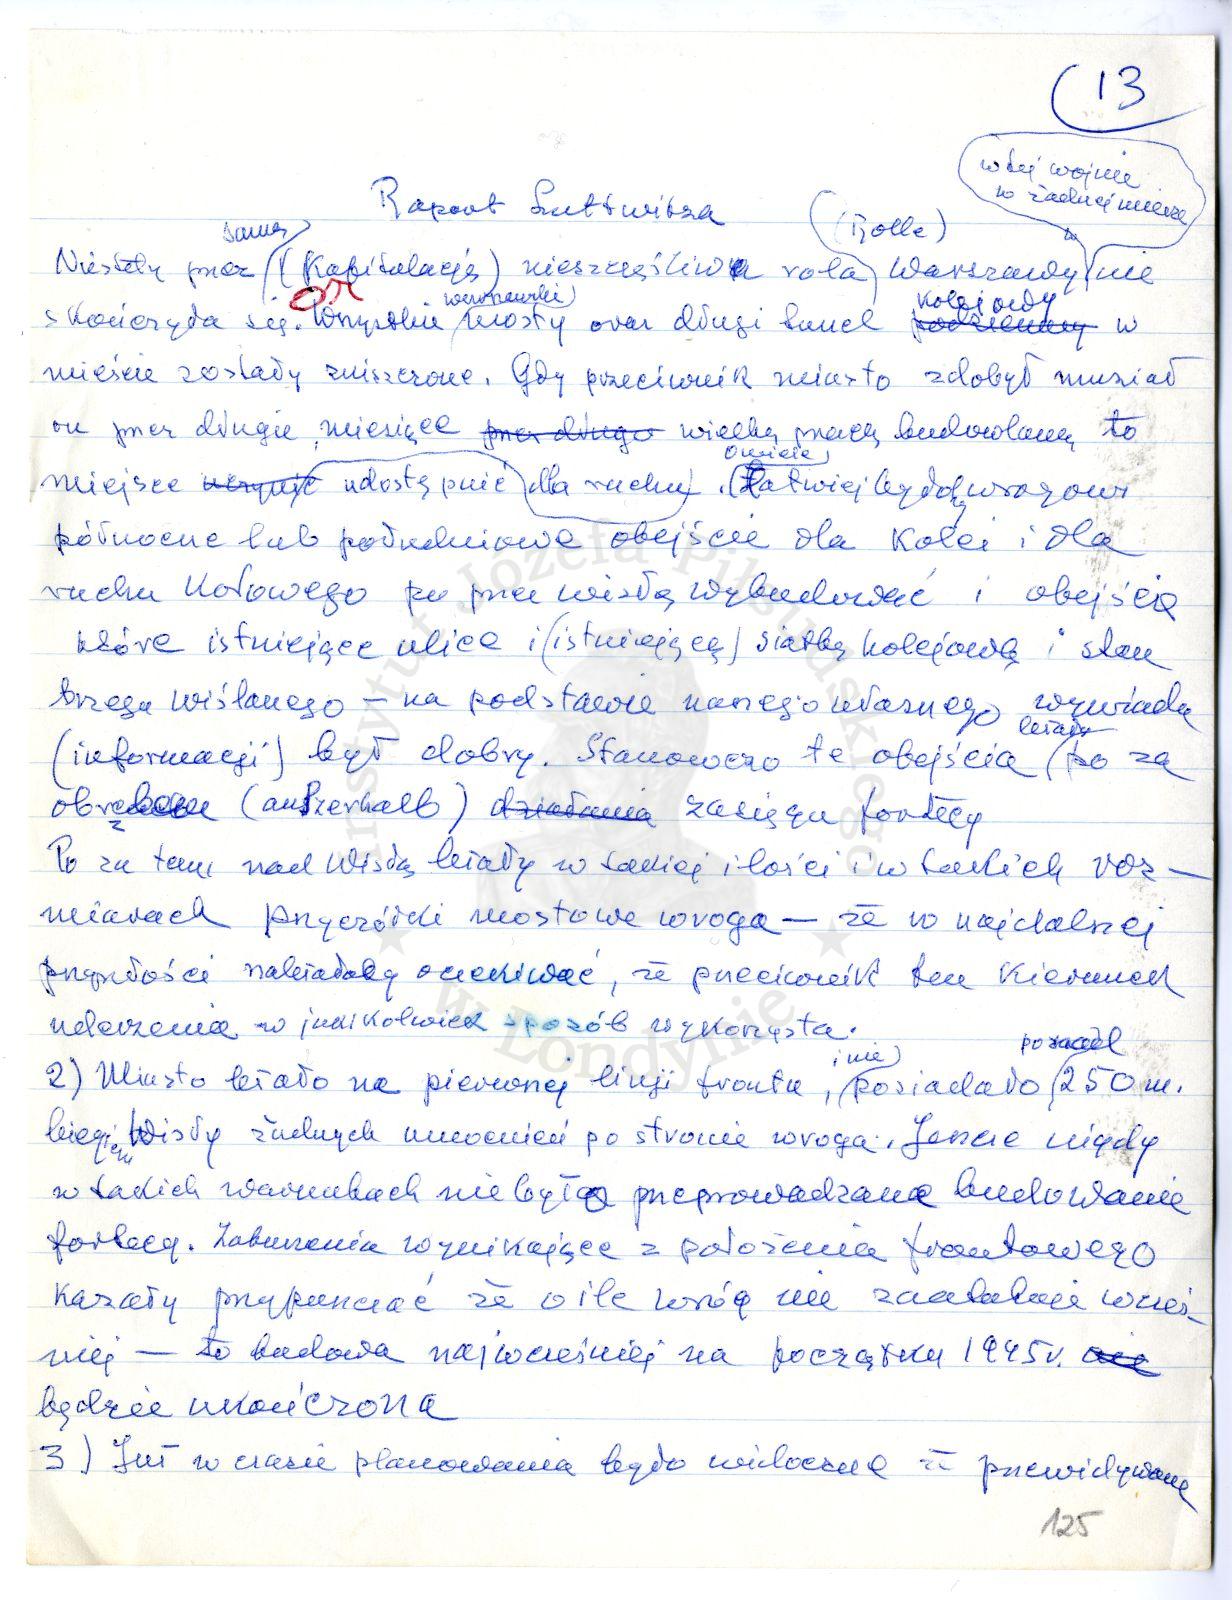 13
w tej wojnie
w żadnej mierze
Raport Luttwitza
samą (Rolle)
Niestety przez (Kapitulację) nieszczęśliwa rola Warszawy nie
warszawskie kolejowy
skończyła się. Wszystkie mosty oraz długi tunel podziemny w
mieście zostały zniszczone. Gdy przeciwnik miasto zdobył musiał
on przez długie miesiące przez długo wielką pracą budowlaną to
o wiele
miejsce uczynić udostępnić dla ruchu. Łatwiej było wrogowi
północne lub południowe obejście dla Kolei i dla
ruchu Kołowego po przez wisłą wybudować i obejścia
które istniejące ulice i (istniejącą) siatką kolejową i stan
brzegu wiślanego — na podstawie naszego własnego wywiadu
leżały
(informacji) był dobry. Stanowczo te obejścia po za
obrębem (außerhalb) działania zasięgu fortecy
Po za tem nad Wisłą leżały w takiej ilości i w takich roz-
miarach przyczółki mostowe wroga — że w najdalszej
przyszłości należałoby oczekiwać, że przeciwnik ten Kierunek
uderzenia w jakikolwiek sposób wykorzysta.
i nie
2) Miasto leżało na pierwszej linji frontu, posiadało 250 m.
biegiem Wisły żadnych umocnień po stronie wroga. Jeszcze nigdy
w takich warunkach nie było przeprowadzane budowanie
fortecy. Zaburzenia wynikające z położenia frontowego
Kazały przypuszczać że o ile wróg nie zaatakuje wcześ-
niej — to budowa najwcześniej na początku 1945 r.
będzie ukończona
3) Już w czasie planowania było widoczne że przewidywane
125
Instytut Józefa Piłsudskiego
w Londynie